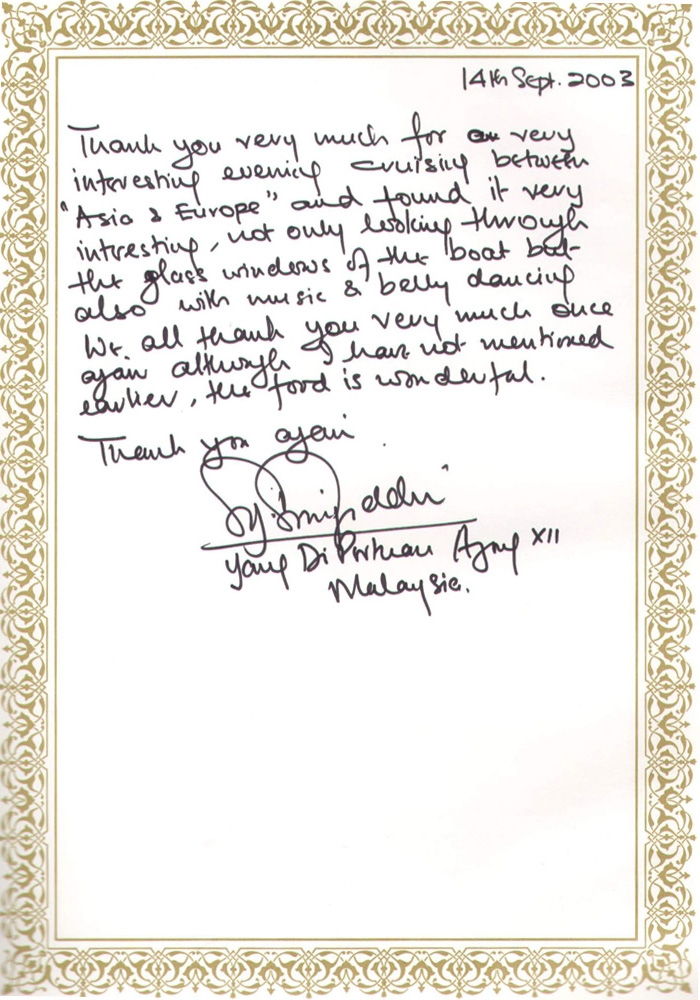 14th Sept. 2003
Thank you very much for a very
interesting evening cruising between
"Asia & Europe" and found it very
intresting, not only looking through
the glass windows of the boat but
also with music & belly dancing
We all thank you very much once
again although I have not mentioned
earlier, the food is wonderful.
Thank you again.
Yang Di Pertuan Agong XII
Malaysia.